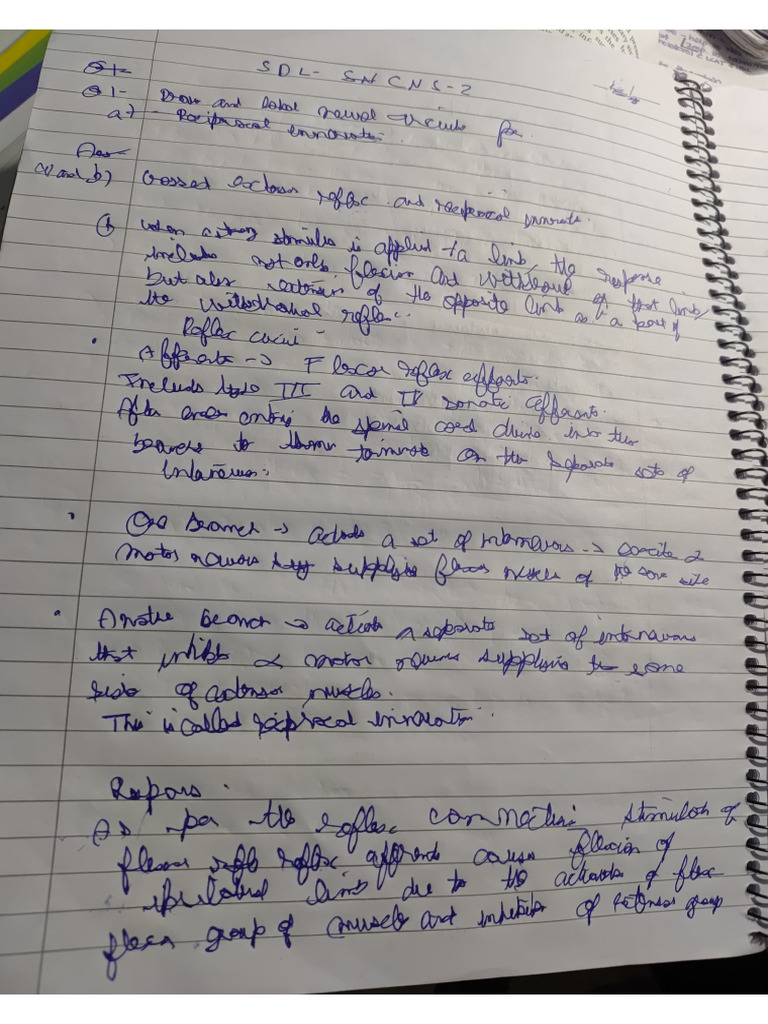 SDL- SN CNS-2
Q1- Draw and label neural circuits for
a) - Reciprocal innervation.
Ans
a) and b) Crossed extensor reflex and reciprocal innervate.
when a strong stimulus is applied to a limb, the response
includes not only flexion and withdrawal of that limb,
but also extension of the opposite limb as a part of
the withdrawal reflex.
Reflex circuit -
Afferents -> Flexor reflex afferents.
Includes type III and IV somatic afferents.
After entering the spinal cord divide into two
branches to terminate on the separate sets of
One branch -> activate a set of interneurons -> excite α
motor neurons supplying flexor muscles of the same side
Another branch -> activate a separate set of interneurons
that inhibit α motor neurons supplying the same
side of extensor muscles.
This is called reciprocal innervation.
Response.
As per the reflex connections stimulation of
flexor reflex afferents cause flexion of
ipsilateral limb due to the activation of
flexor group of muscles and inhibition of extensor group